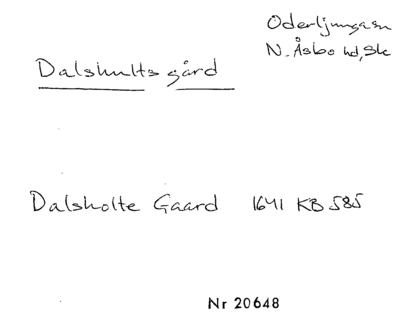 Oderljunga sn
N. Åsbo hd, Sk
Dalshults gård
Dalsholte Gaard 1641 KB 585
Nr 20648